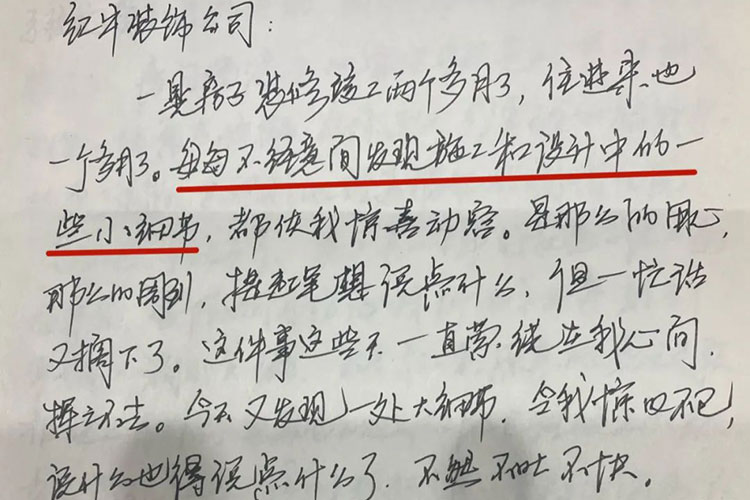 红牛装饰公司：
一晃房子装修竣工两个多月了，住进来也
一个多月了。每每不经意间发现施工和设计中的一
些小细节，都使我惊喜动容。是那么的用心，
那么的周到，提起笔想说点什么，但一忙活
又搁下了。这件事这些天一直萦绕在我心间，
挥之不去。今天又发现一处大细节，令我惊叹不已，
说什么也得说点什么了，不然不吐不快。